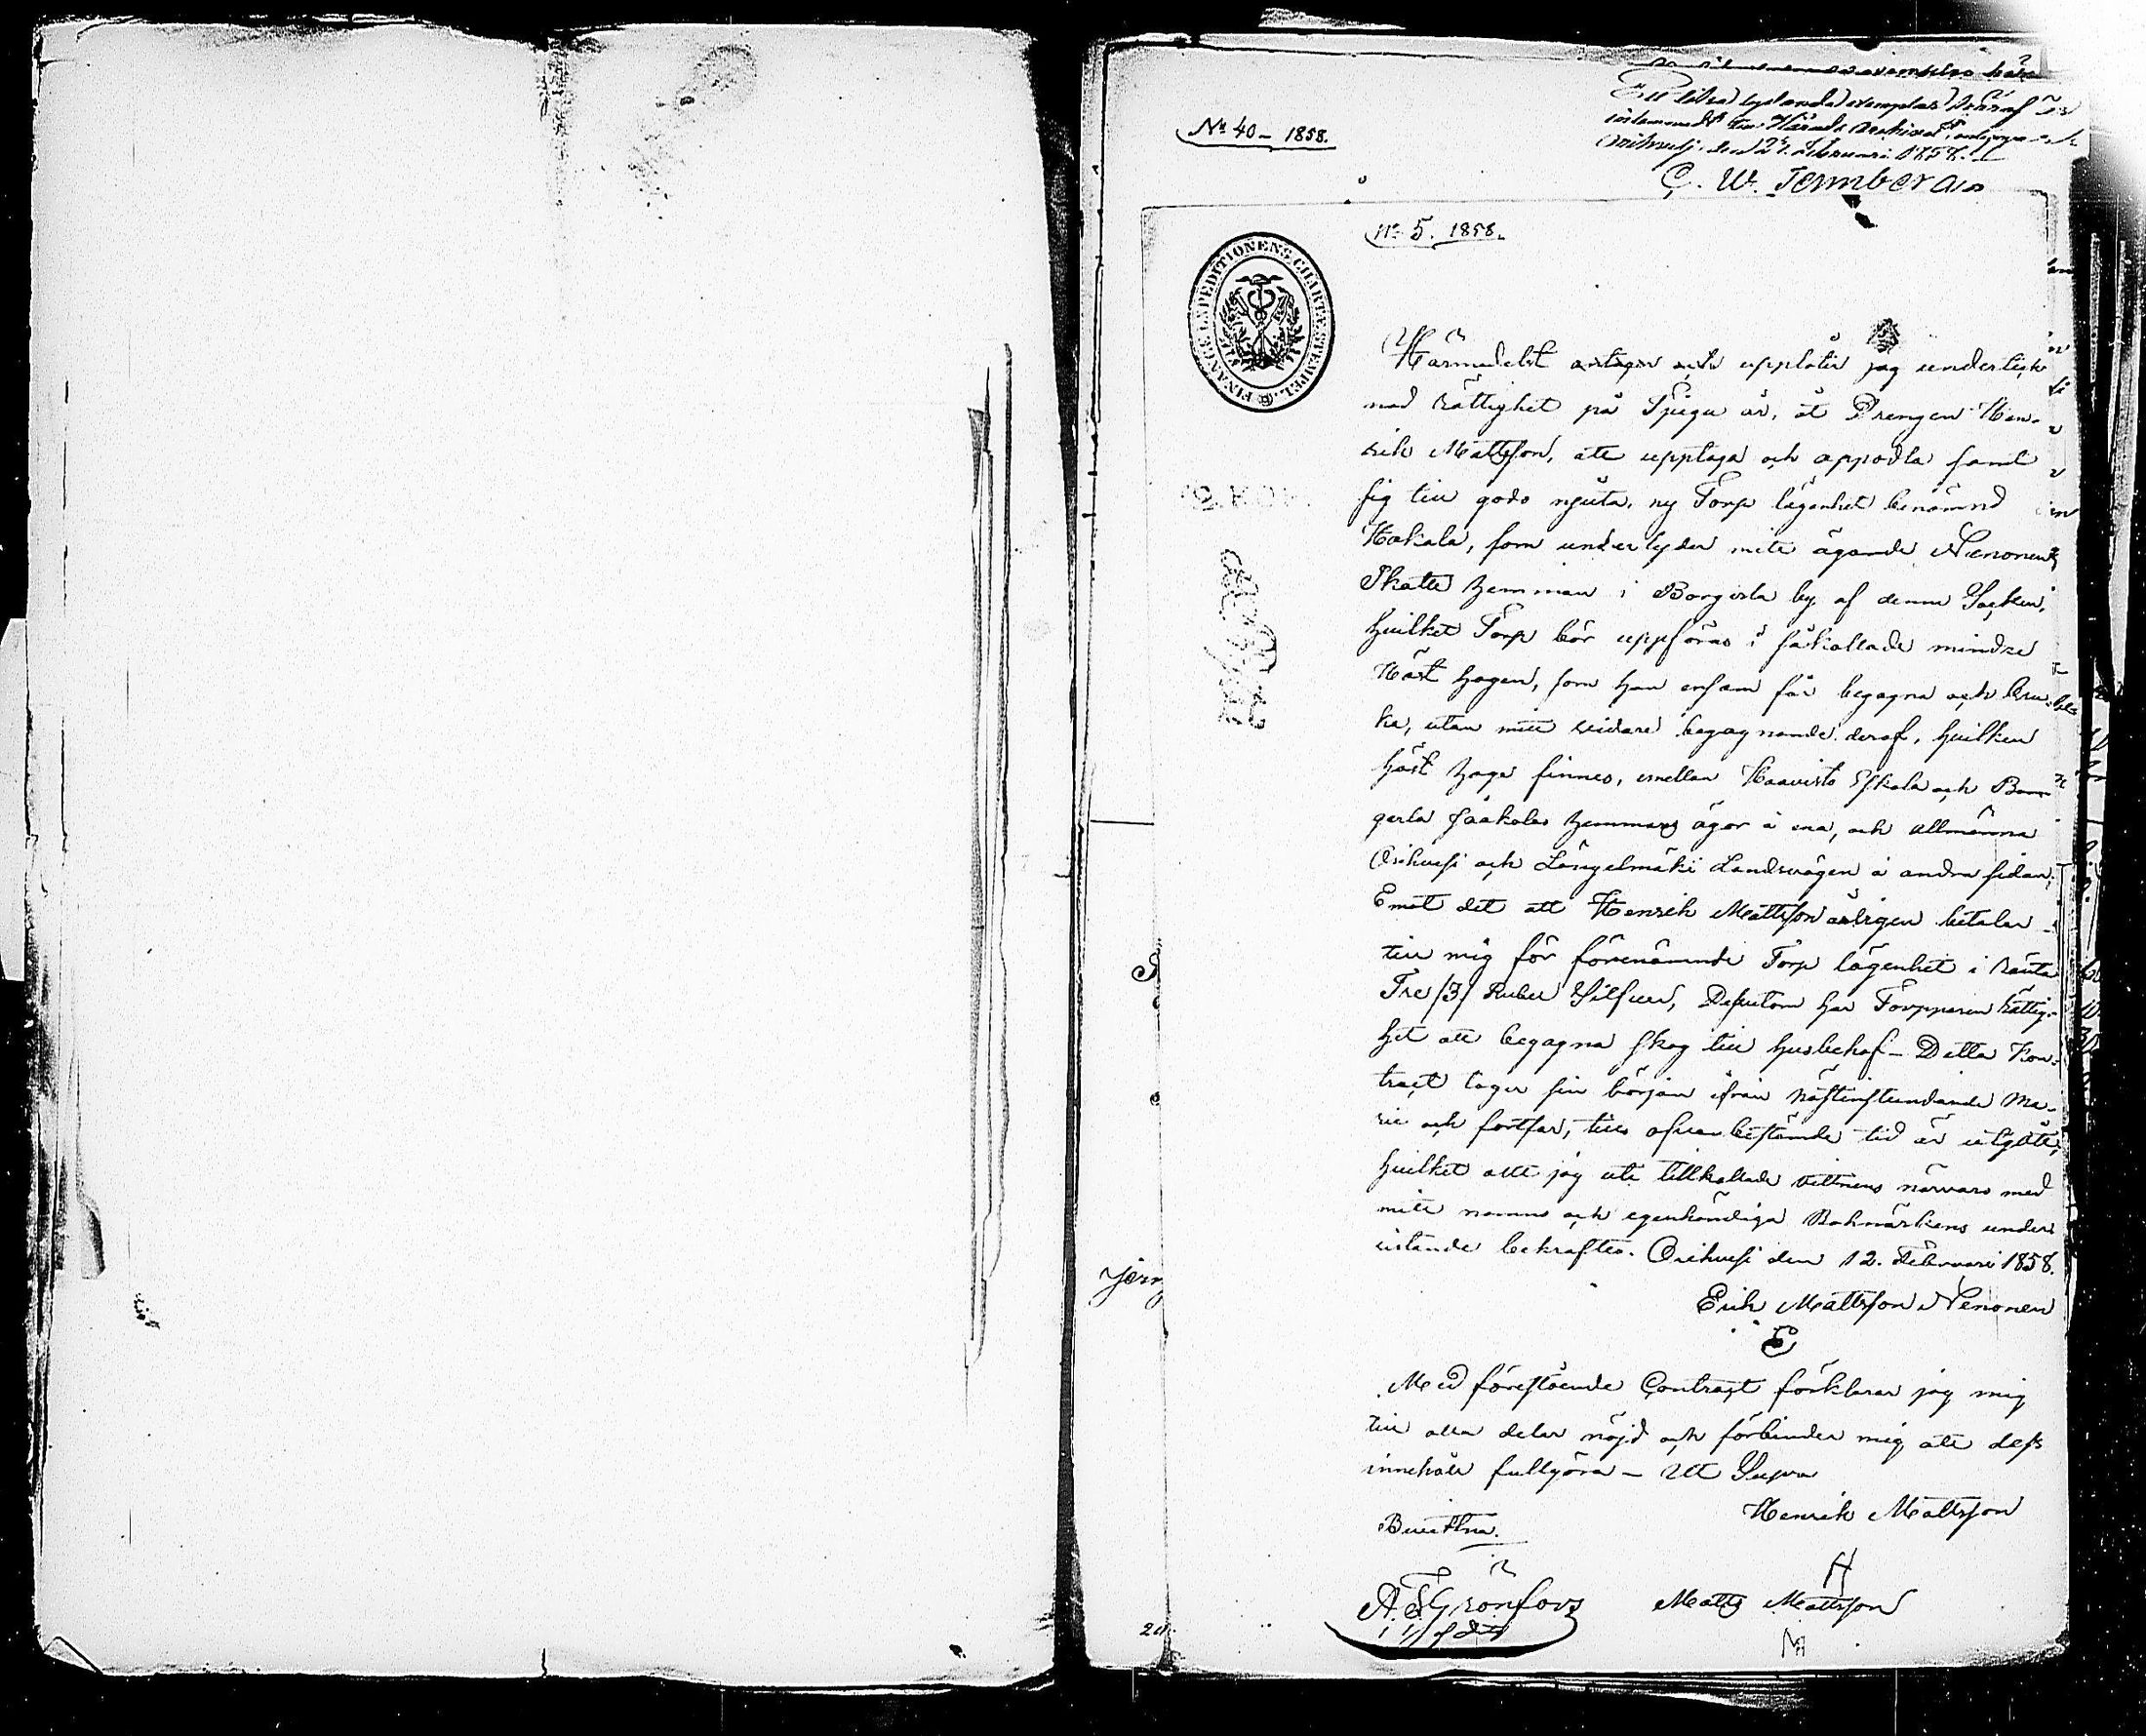 No 40 - 1858.
Ett lika lydande exemplar häraf är
inlemnadt till Härads Archivet,
Orihvesi den 27. Februari 1858.
C. W.
No 5. 1858.
FINANCE EXPEDITIONENS CHARTÆ STEMPEL.
Härmedelst antager och upplåter jag underteck
nad rättighet på Tjugu år, åt Drengen Hen-
rik Mattsson, att upptaga och appodla samt
sig till godo njuta, ny Torp lägenhet benämnd
Hakala, som underlyder mitt ägande Nenonens
Skatte hemman i Bångerla by af denna Socken,
hvilket Torp bör uppföras i såkallade mindre
Häst hagen, som han ensam får begagna och bru-
ka, utan mitt vidare begagnande deraf, hvilken
häst hage finnes, emellan Haavisto Eskola och Bon
gerla Jaakolas hemmans ägor å ena, och allmänna
Orihvesi och Längelmäki Landsvägen å andra sidan,
Emot det att Henrik Mattsson årligen betalar
till mig för förenämnde Torp lägenhet i ränta
Tre /3/ Rubel Silfver, Dessutom har Torpparen rättig-
het att begagna skog till husbehof - Detta Kon-
tract tager sin början ifrån nästinstundande Ma-
rie och fortfar, tills ofvan bestämde tid är utgått,
hvilket allt jag uti tillkallade vittnens närvaro med
mitt namns och egenhändiga Bomärkens under
ristande bekräftes. Orihvesi den 12. Februari 1858.
Erik Mattsson Nenonen
E
Med förestående Contract förklarar jag mig
till alla delar nöjd och förbinder mig att dess
innehåll fullgöra - Ut Supra
Henrik Mattsson
Bevittna.
H
A. F. Grönfors
Matts Mattsson
M